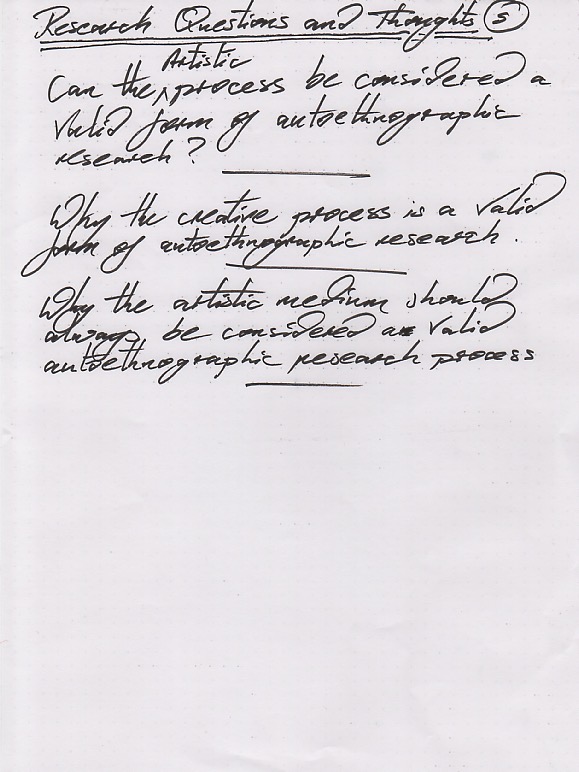 Research Questions and Thoughts 5
Artistic
Can the process be considered a
valid form of autoethnographic
research?
Why the creative process is a valid
form of autoethnographic research.
Why the artistic medium should
always be considered a valid
autoethnographic research process